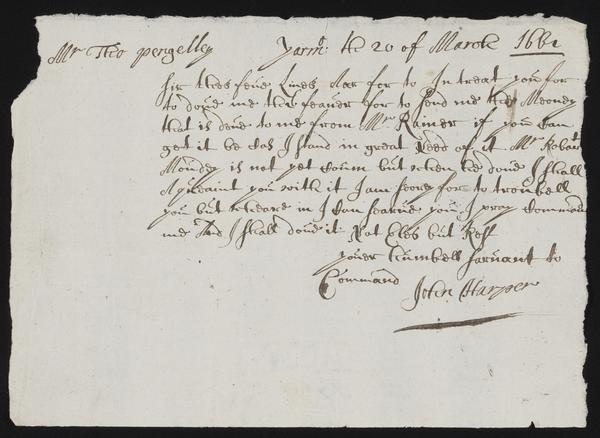 Mr Tho pengelley Yarmo th 20 of March 1661
Sir thes feue Lines Aar for to In treat you for
to doue me the feauer for to send me the Moeney
that is doue to me from Mr Rainer if you Can
get it be Cas I stand in great Need of it Mr Robart
Mondey is not yet Coum but when he doue I shall
Aqueaint you with it I am sorey for to troubell
you but wheare in I Can searue you I pray Command
me And I shall doue it Not Eles but Rest
youer humbell saruant to
Command John Harper